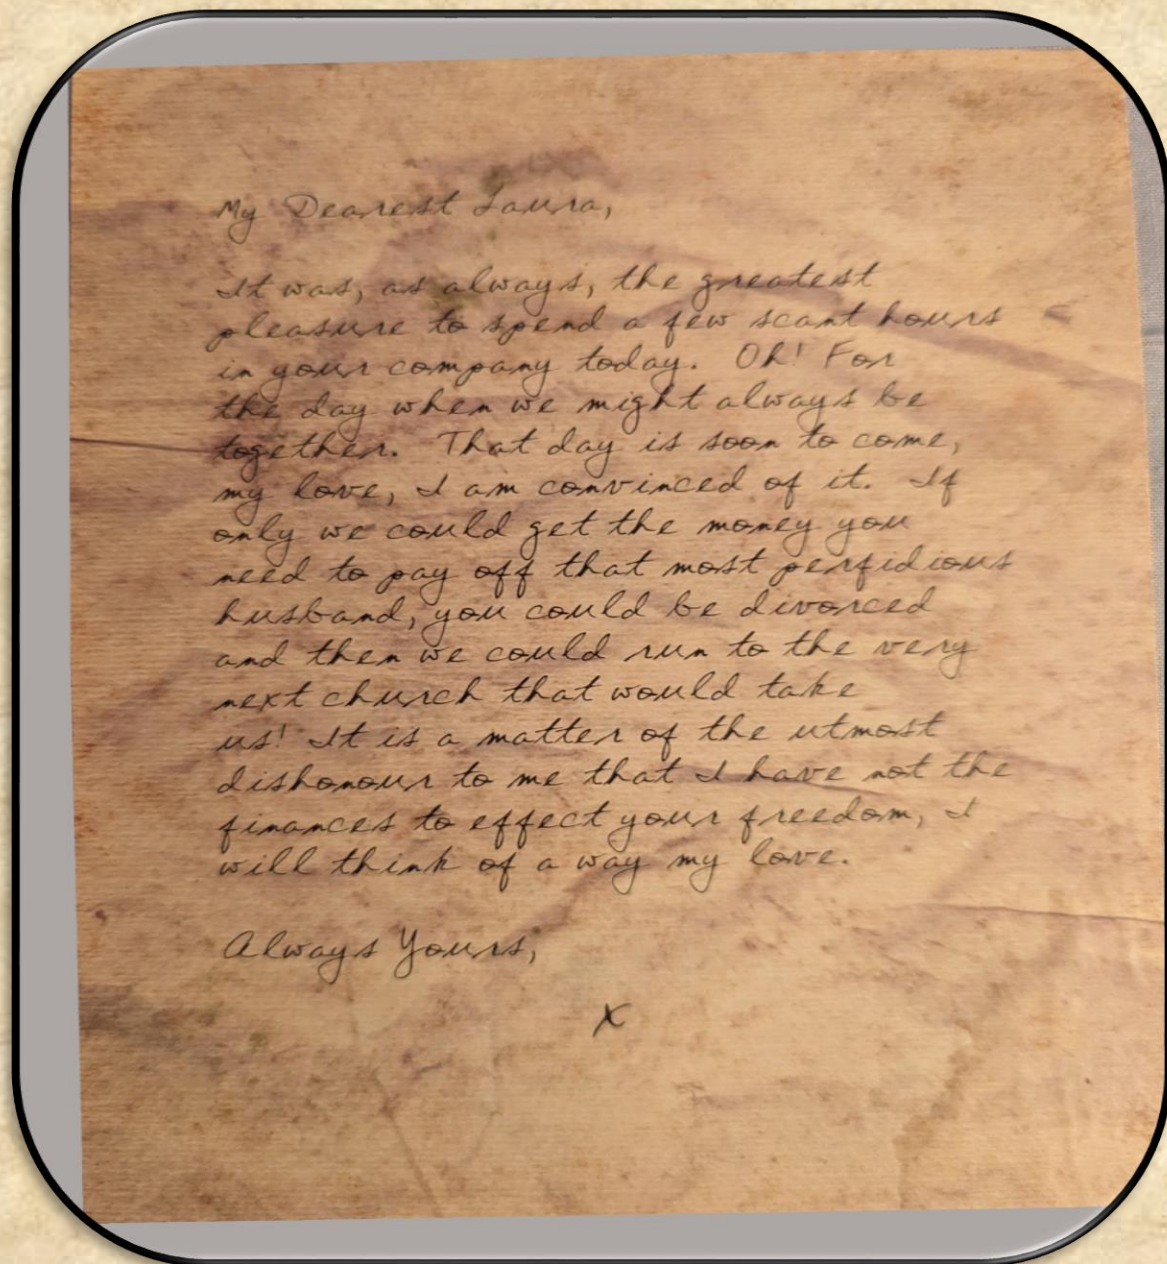 My Dearest Laura,
It was, as always, the greatest
pleasure to spend a few scant hours
in your company today. Oh! For
the day when we might always be
together. That day is soon to come,
my love, I am convinced of it. If
only we could get the money you
need to pay off that most perfidious
husband, you could be divorced
and then we could run to the very
next church that would take
us! It is a matter of the utmost
dishonour to me that I have not the
finances to effect your freedom, I
will think of a way my love.
Always Yours,
X